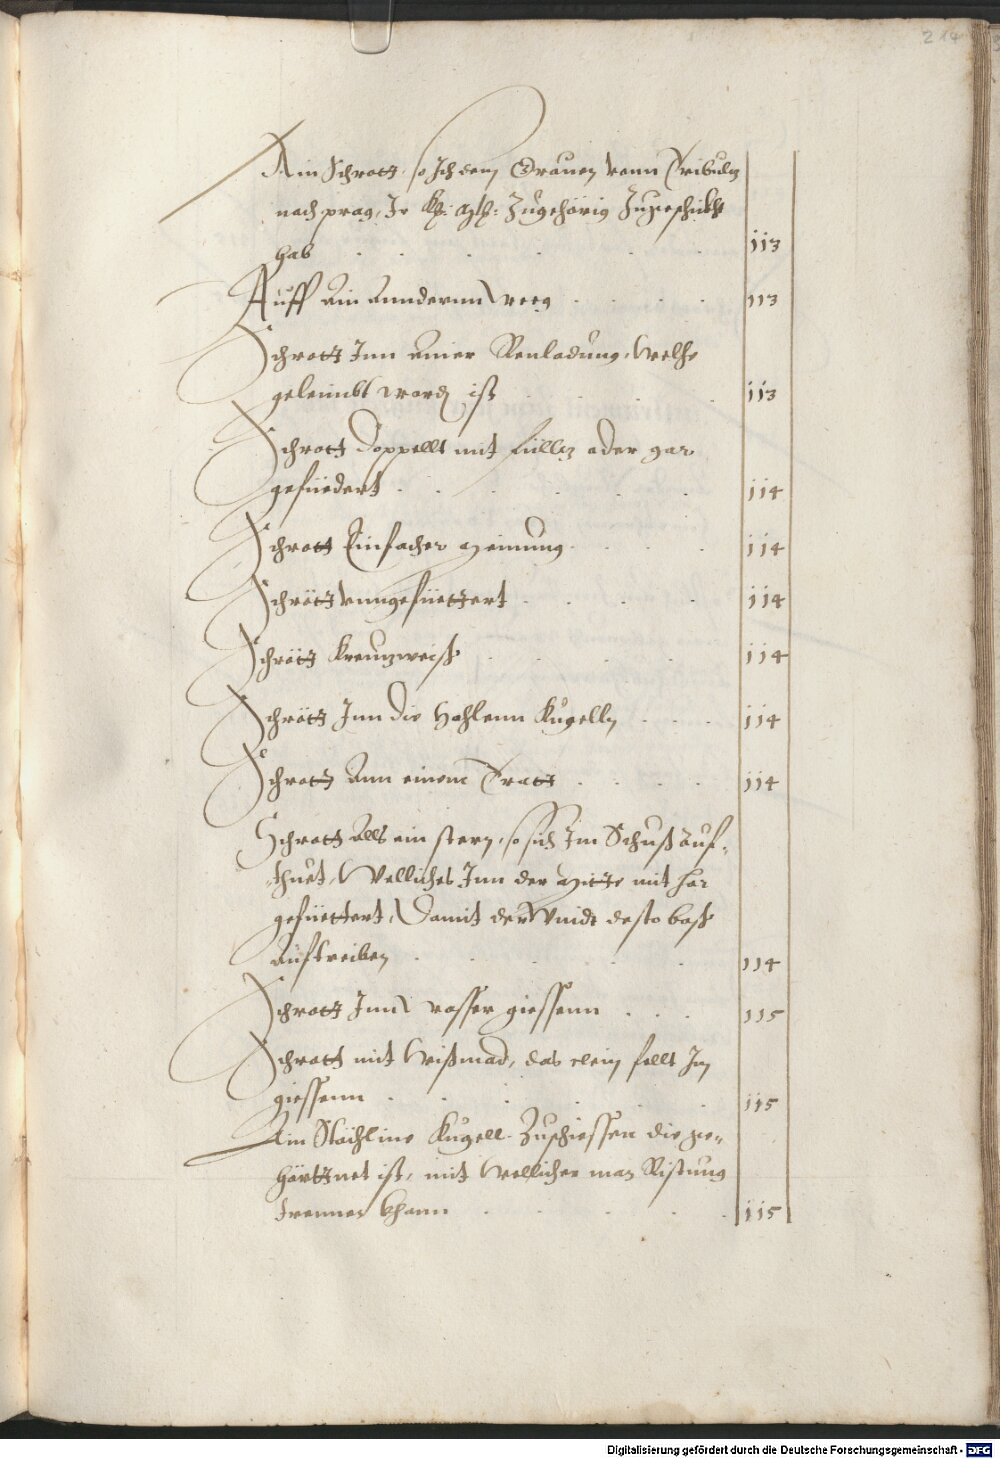 214
Ain Schrott, so Ich dem Grauen vonn Tribultz
nach prag, Ir Kh: Mt: Zugehörig Zugeschickht
hab . . . . . 113
Auff Ain Anndernn weeg . . . . 113
Schrott Inn Ainer Renladung, Welche
geleimbt wordn ist . . . 113
Schrott Doppellt mit fülltz oder gar
gefüedert . . . . . . 114
Schrott Einfacher Meinung . . . 114
Schrött vnngefüettert . . . . 114
Schrött kreutzweiß . . . . 114
Schrött Inn die Hohlenn Kugelln . . . 114
Schrott Ann einem Tratt . . . . 114
Schrott Alls ein stern, so sich Im Schuß auf-
thuet, Welliches Inn der Mitte mit har
gefüettert, Damit der Windt desto baß
auftreiben . . . . . 114
Schrott Inn wasser giessenn . . . 115
Schrott mit Wißmad, das clein fellt Im
giessenn . . . . . 115
Ein Stächline Kugell Zuschiessen die ge-
härttnet ist, mit Wellicher man Ristung
trennen khann . . . . . 115
Digitalisierung gefördert durch die Deutsche Forschungsgemeinschaft - DFG